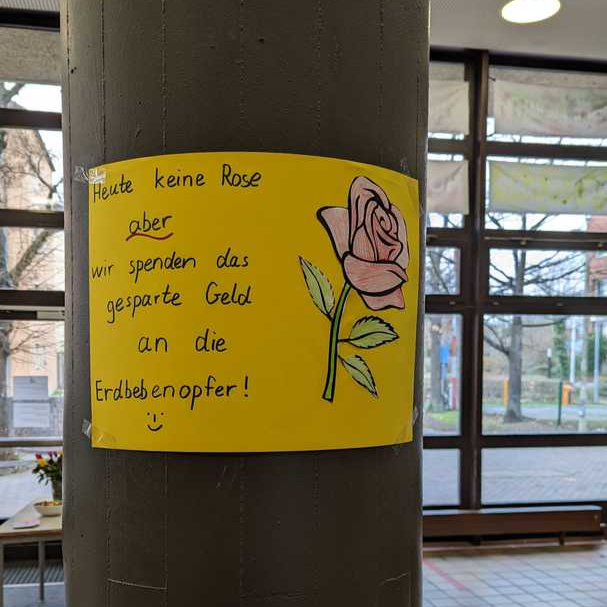 Heute keine Rose
aber
wir spenden das
gesparte Geld
an die
Erdbebenopfer!